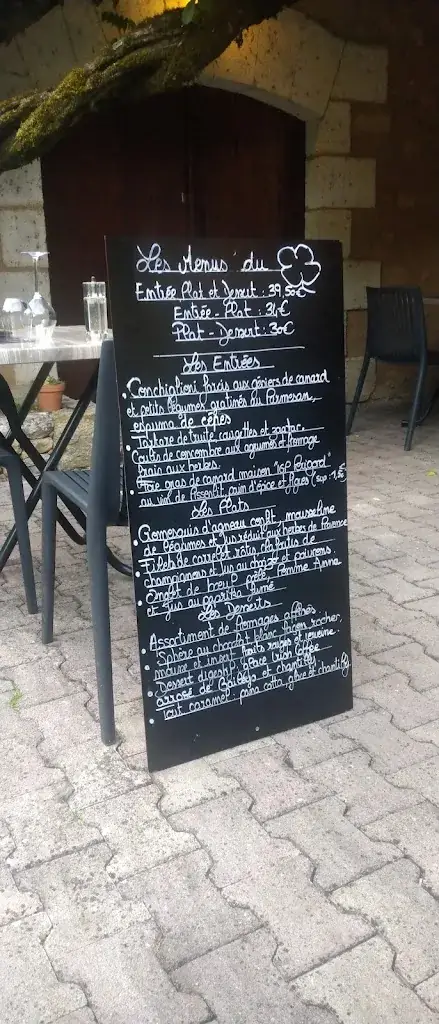 Les Menus du
Entrée Plat et Dessert : 39,50€
Entrée - Plat : 34€
Plat - Dessert : 30€
Les Entrées
Conchiglioni farcis aux gésiers de canard
et petits légumes gratinés au Parmesan,
espuma de cèpes
Tartare de truite, courgettes et zaatar
de concombre aux agrumes et fromage
frais aux herbes.
Foie gras de canard maison "IGP Périgord"
au vin de pain d'épice et figues (sup : €
Les Plats
d'agneau confit, mousseline
de légumes et jus réduit aux herbes de Provence
Filets de carrelet rôtis,
champignons et jus au chorizo et poivrons.
Onglet de boeuf poêlé, Pomme Anna
et jus au paprika fumé
Les Desserts
Assortiment de fromages affinés
Sphère au chocolat blanc façon rocher,
fruits rouges et verveine.
Dessert digestif, glace Irish Coffee
arrosé de Baileys et chantilly
Tout caramel, pana cotta, glace et chantilly